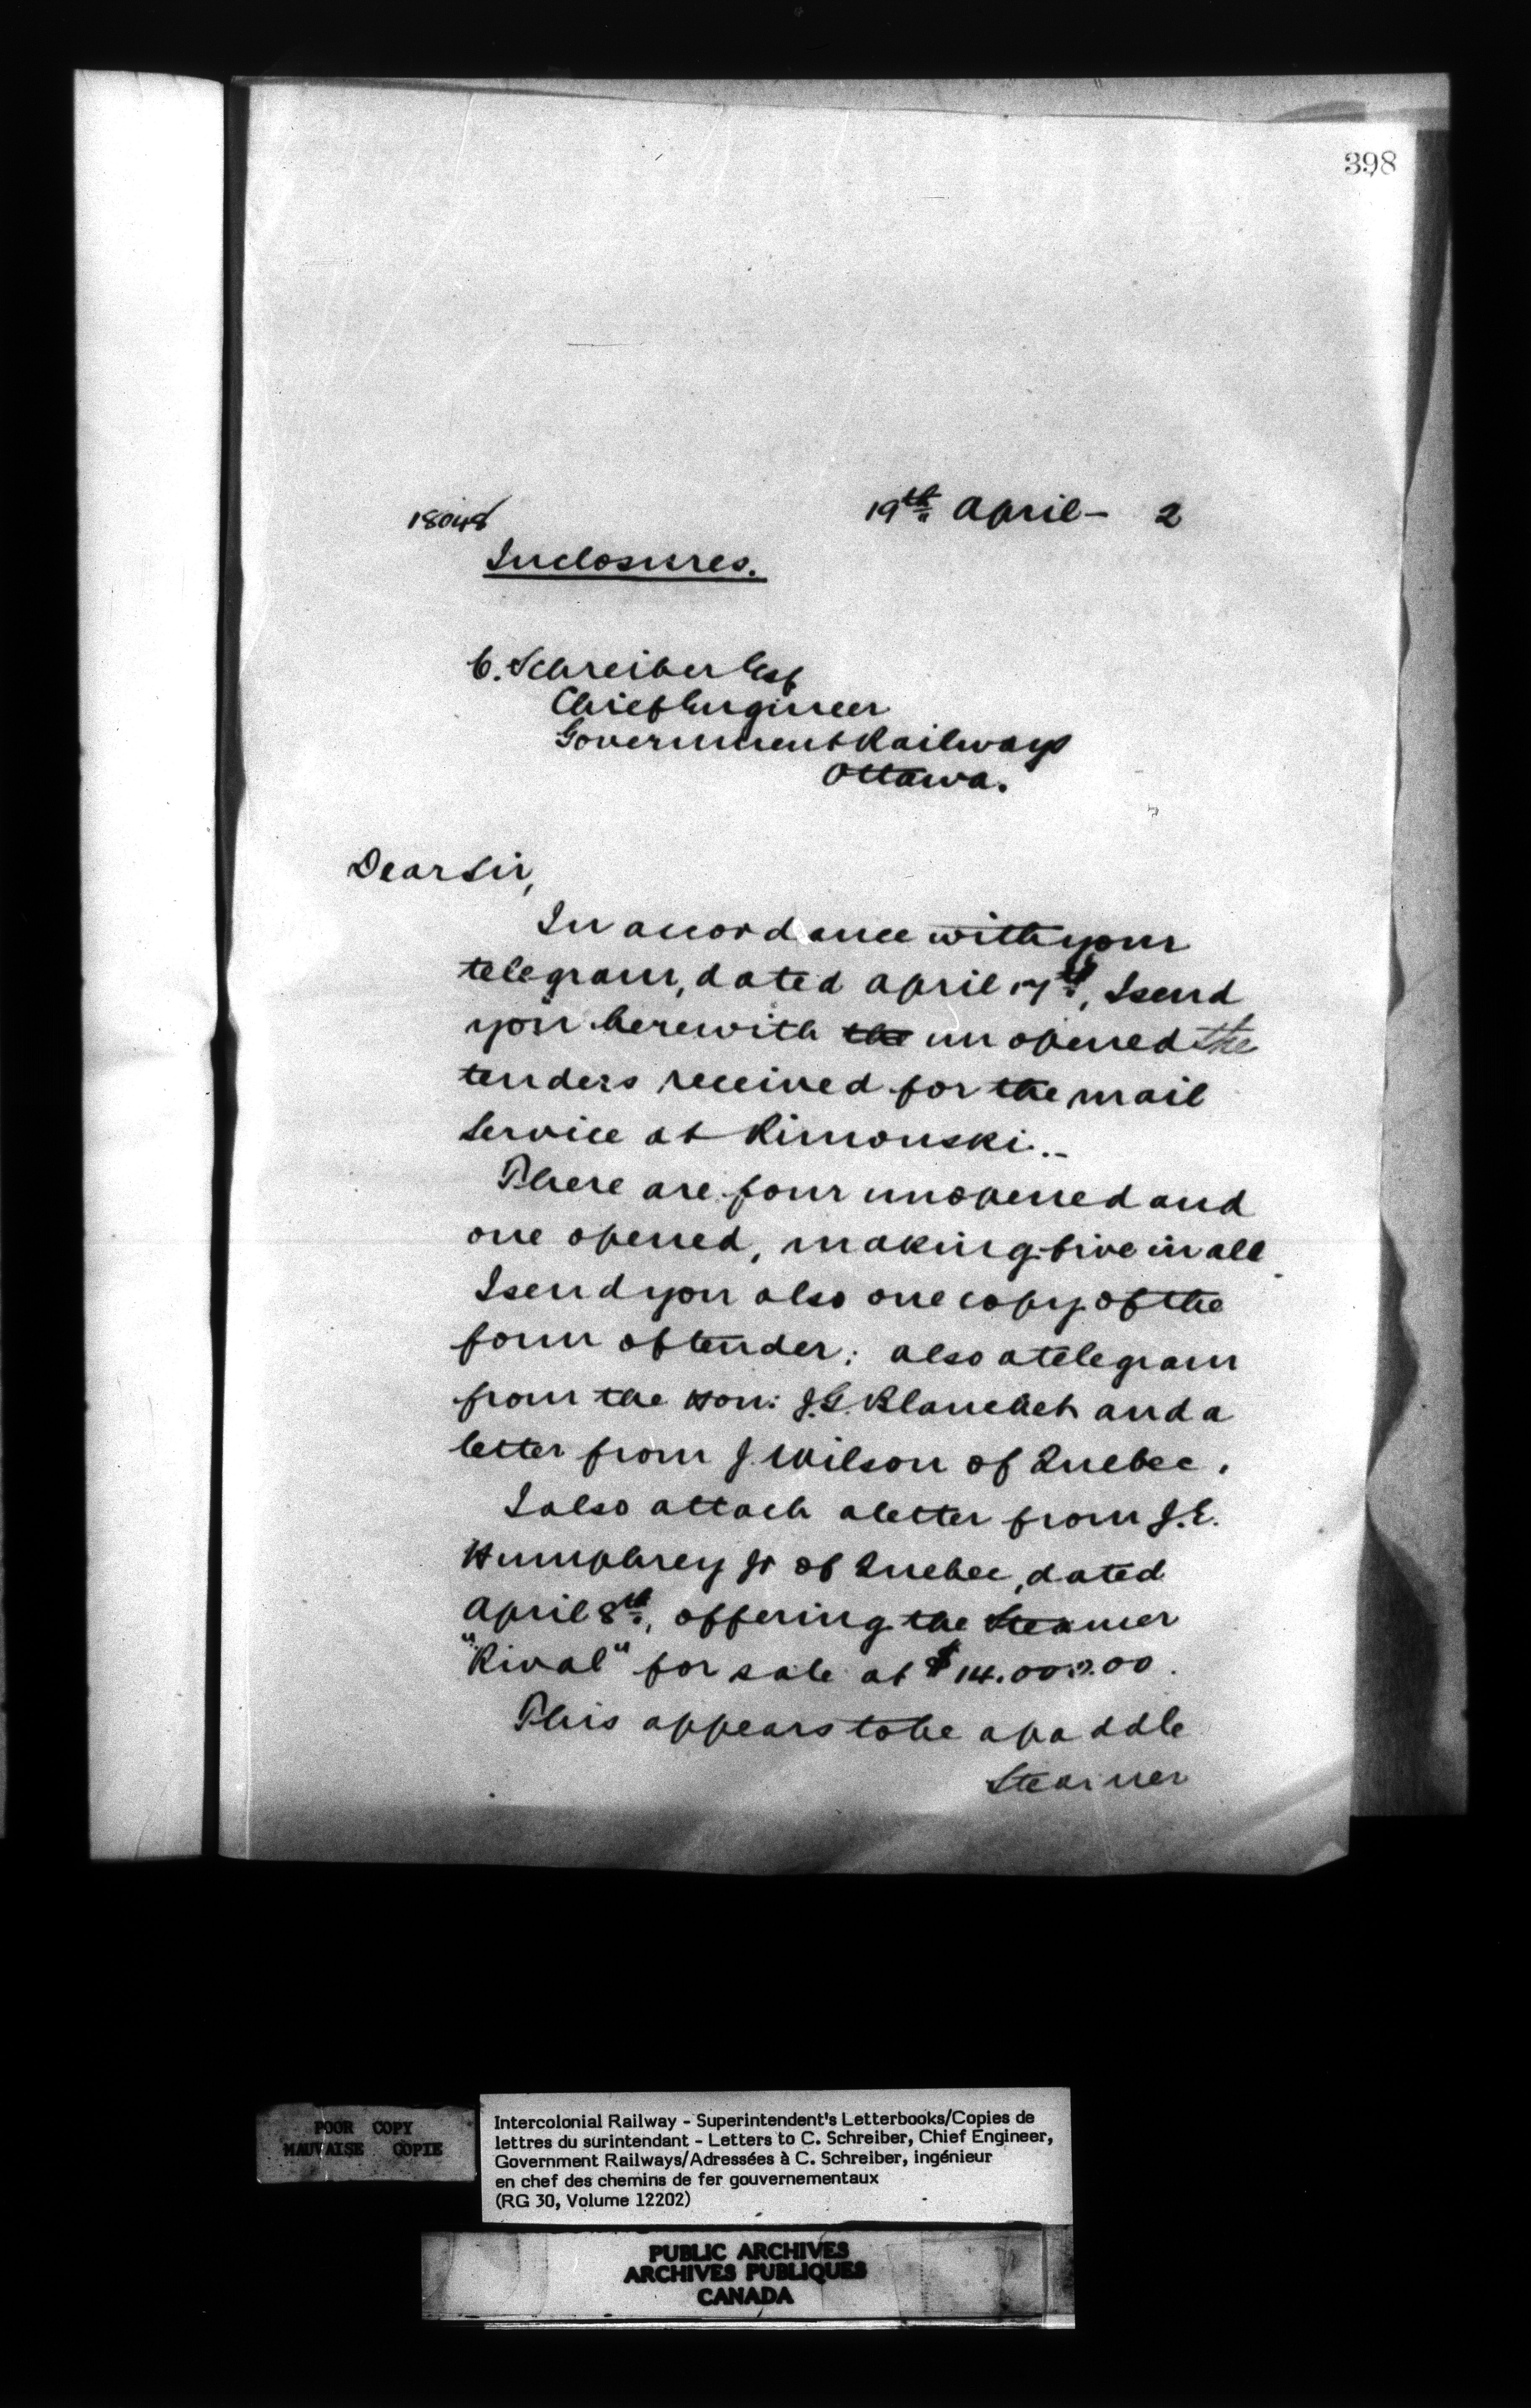 398
18048
19th April - 2
Inclosures.
C. Schreiber Esq
Chief Engineer
Government Railways
Ottawa.
Dear Sir,
In accordance with your
telegram, dated April 17th, I send
you herewith the unopened the
tenders received for the mail
service at Rimouski.
There are four unopened and
one opened, making five in all.
I send you also one copy of the
form of tender; also a telegram
from the Hon: J.G. Blanchet and a
letter from J. Wilson of Quebec.
I also attach a letter from J.E.
Humphrey Jr of Quebec, dated
April 8th, offering the Steamer
"Rival" for sale at $14.000.00.
This appears to be a paddle
Steamer
POOR COPY
MAUVAISE COPIE
Intercolonial Railway - Superintendent's Letterbooks/Copies de
lettres du surintendant - Letters to C. Schreiber, Chief Engineer,
Government Railways/Adressées à C. Schreiber, ingénieur
en chef des chemins de fer gouvernementaux
(RG 30, Volume 12202)
PUBLIC ARCHIVES
ARCHIVES PUBLIQUES
CANADA